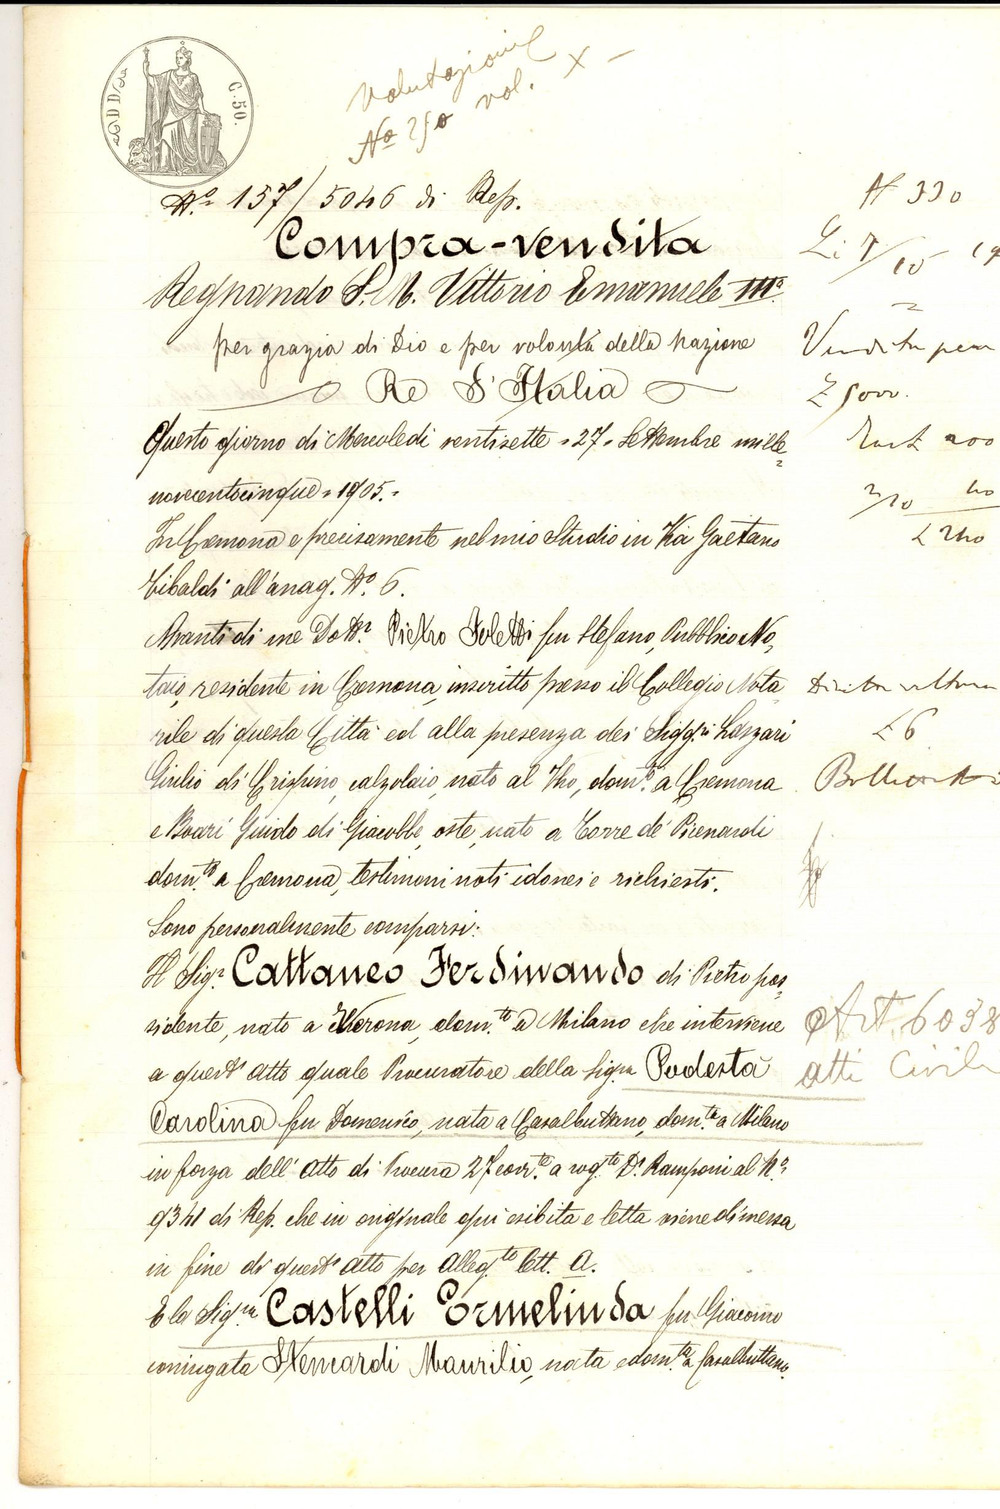 C. 50.
Volutazione
No 250 vol. X -
No. 157/5046 di Rep.
Compra-vendita
Regnando S. M. Vittorio Emanuele IIIo
per grazia di Dio e per volontà della Nazione
Re d'Italia
Questo giorno di Mercoledì ventisette = 27 = Settembre mille=
novecentocinque = 1905. =
In Cremona e precisamente nel mio Studio in Via Gaetano
Tibaldi all'anag. No. 6.
Avanti di me Dottr. Pietro Foletti fu Stefano, Pubblico No=
taio, residente in Cremona, inscritto presso il Collegio Nota
rile di questa Città ed alla presenza dei Sigg.ri Lazzari
Giulio di Crispino, calzolaio, nato al Pho, dom.to a Cremona
e Boari Guido di Giacobbe, oste, nato a Torre de' Picenardi
dom.to a Cremona, testimoni noti idonei e richiesti.
Sono personalmente comparsi:
Il Sigr. Cattaneo Ferdinando di Pietro pos=
sidente, nato a Verona, dom.to a Milano che interviene
a quest'atto quale Procuratore della Sig.ra Podestà
Carolina fu Domenico, nata a Casalbuttano, dom.ta a Milano
in forza dell'atto di Procura 27 corr.te a rog.to Dr. Ramponi al No.
9341 di Rep. che in originale qui esibita e letta viene dimessa
in fine di quest'atto per alleg.to lett. A.
E la Sig.ra Castelli Ermelinda fu Giacomo
coniugata Stenardi Maurilio, nata e dom.ta a Casalbuttano.
N 330
Li 7/10
Vendita per
£ 5000.
200
2/10 40
£ 240
£ 6
Art. 6038
atti Civili